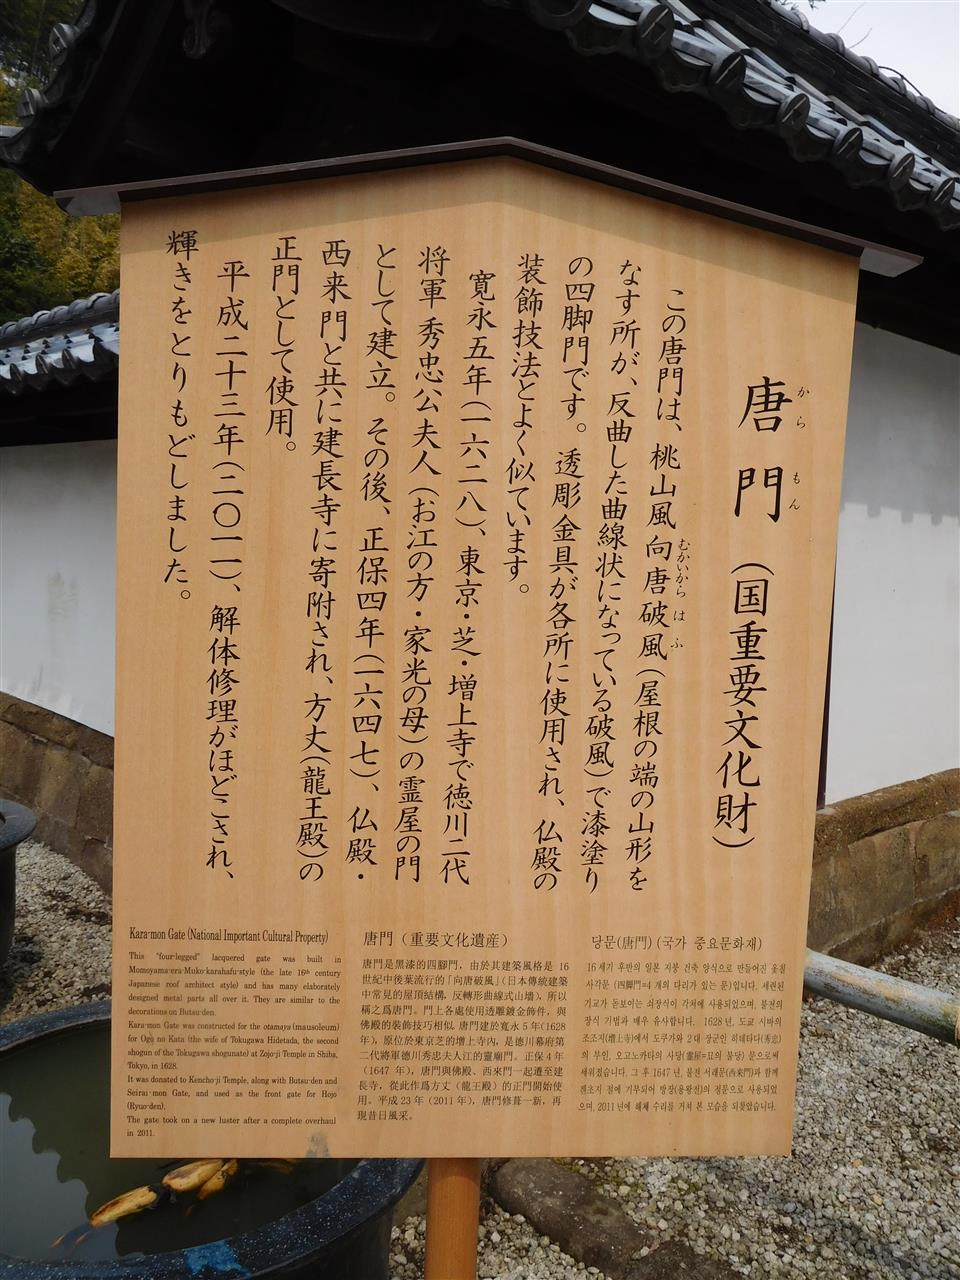 唐門（国重要文化財）
から
もん
この唐門は、桃山風向唐破風（屋根の端の山形を
むかいから
はふ
なす所が、反曲した曲線状になっている破風）で漆塗り
の四脚門です。透彫金具が各所に使用され、仏殿の
装飾技法とよく似ています。
寛永五年（一六二八）、東京・芝・増上寺で徳川二代
将軍秀忠公夫人（お江の方・家光の母）の霊屋の門
として建立。その後、正保四年（一六四七）、仏殿・
西来門と共に建長寺に寄附され、方丈（龍王殿）の
正門として使用。
平成二十三年（二〇一一）、解体修理がほどこされ、
輝きをとりもどしました。
Kara-mon Gate (National Important Cultural Property)
This "four-legged" lacquered gate was built in
Momoyama-era-Muko-karahafu-style (the late 16th century
Japanese roof architect style) and has many elaborately
designed metal parts all over it. They are similar to the
decorations on Butsu-den.
Kara-mon Gate was constructed for the otamaya (mausoleum)
for Ogo no Kata (the wife of Tokugawa Hidetada, the second
shogun of the Tokugawa shogunate) at Zojo-ji Temple in Shiba,
Tokyo, in 1628.
It was donated to Kencho-ji Temple, along with Butsu-den and
Seirai-mon Gate, and used as the front gate for Hojo
(Ryuo-den).
The gate took on a new luster after a complete overhaul
in 2011.
唐門（重要文化遺産）
唐門是黑漆的四腳門，由於其建築風格是 16
世紀中後葉流行的「向唐破風」（日本傳統建築
中常見的屋頂結構，反轉形曲線式山墻），所以
稱之爲唐門。門上各處使用透雕鍍金飾件，與
佛殿的裝飾技巧相似。唐門建於寬永 5 年(1628
年)，原位於東京芝的增上寺內，是德川幕府第
二代將軍德川秀忠夫人江的靈廟門。正保 4 年
（1647 年），唐門與佛殿、西來門一起遷至建
長寺，從此作爲方丈（龍王殿）的正門開始使
用。平成 23 年（2011 年），唐門修葺一新，再
現昔日風采。
당문(唐門) (국가 중요문화재)
16 세기 후반의 일본 지붕 건축 양식으로 만들어진 옻칠
사각문 (四脚門=4 개의 다리가 있는 문)입니다. 세련된
기교가 돋보이는 쇠장식이 각처에 사용되었으며, 불전의
장식 기법과 매우 유사합니다. 1628 년, 도쿄 시바의
조조지(增上寺)에서 도쿠가와 2 대 장군인 히데타다(秀忠)
의 부인, 오고노카타의 사당(靈屋=묘의 불당) 문으로써
세워졌습니다. 그 후 1647 년, 불전 서래문(西來門)과 함께
겐초지 절에 기부되어 방장(용왕전)의 정문으로 사용되었
으며, 2011 년에 해체 수리를 거쳐 본 모습을 되찾았습니다.